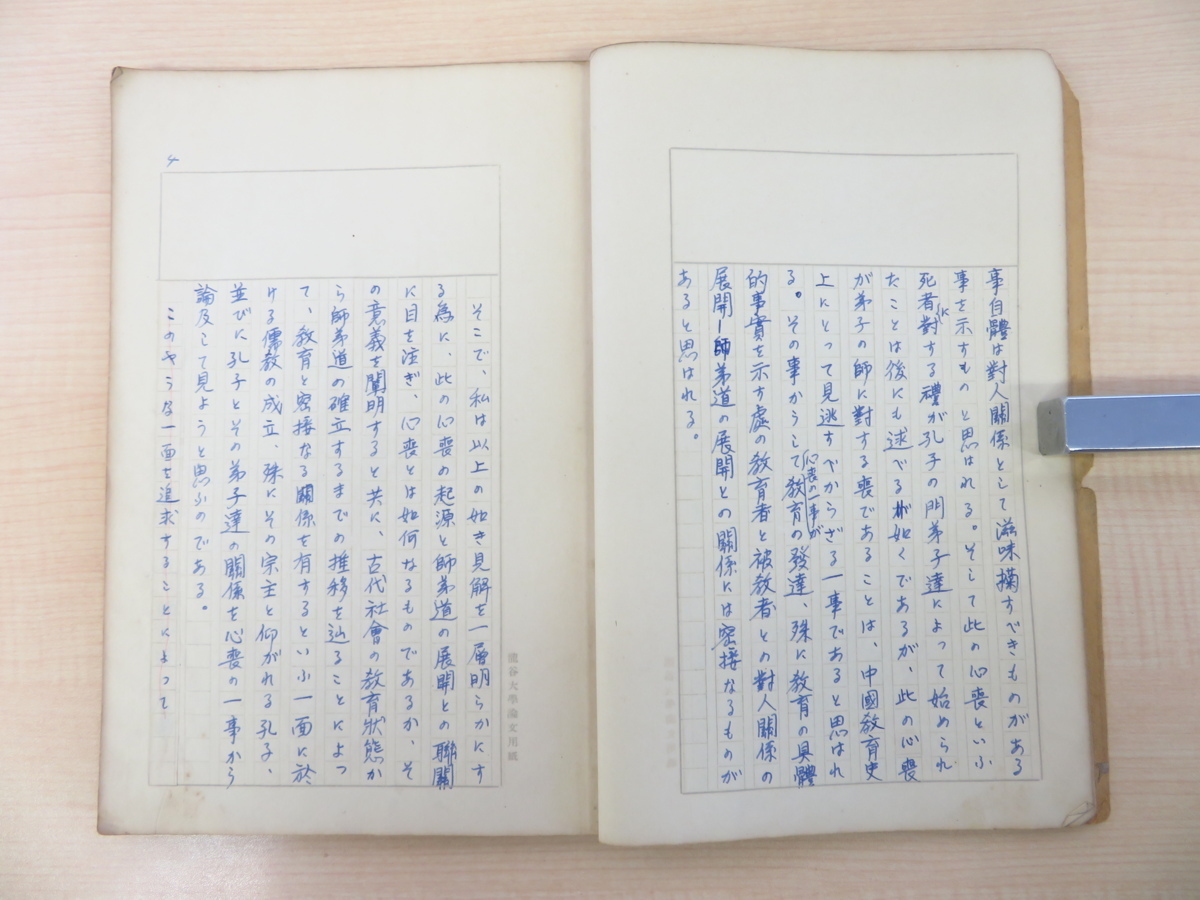 事自體は對人關係として滋味掬すべきものがある
事を示すものと思はれる。そして此の心喪といふ
死者に對する禮が孔子の門弟子達によって始められ
たことは後にも述べる如くであるが、此の心喪
が弟子の師に對する喪であることは、中國敎育史
上にとって見逃すべからざる一事であると思はれ
る。その事からして心喪の一事が敎育の發達、殊に敎育の具體
的事實を示す處の敎育者と被敎者との對人關係の
展開ー師弟道の展開との關係には密接なるものが
あると思はれる。
そこで、私は以上の如き見解を一層明らかにす
る為に、此の心喪の起源と師弟道の展開との聯關
に目を注ぎ、心喪とは如何なるものであるか、そ
の意義を闡明すると共に、古代社會の敎育狀態か
ら師弟道の確立するまでの推移を辿ることによっ
て、敎育と密接なる關係を有するといふ一面に於
ける儒敎の成立、殊にその宗主と仰がれる孔子、
並びに孔子とその弟子達の關係を心喪の一事から
論及して見ようと思ふのである。
このやうな一面を追求することによって
4
龍谷大學論文用紙